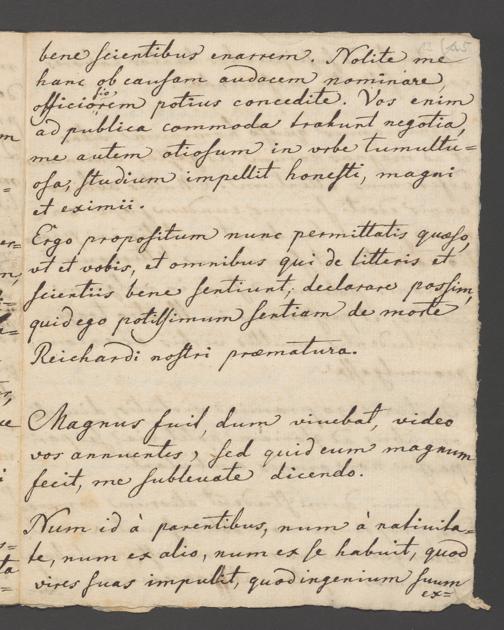 bene scientibus enarrem. Nolite me
hanc ob causam audacem nominare,
officiosiorem potius concedite. Vos enim
ad publica commoda trahunt negotia,
me autem otiosum in urbe tumultu=
osa, studium impellit honesti, magni
et eximii.
Ergo propositum nunc permittatis quæso,
vt et vobis, et omnibus qui de litteris et
scientiis bene sentiunt, declarare possim,
quid ego potissimum sentiam de morte
Reichardi nostri præmatura.
Magnus fuit, dum vivebat, video
vos annuentes, sed quid eum magnum
fecit, me sublevate dicendo.
Num id à parentibus, num à nativita=
te, num ex alio, num ex se habuit, quod
vires suas impulit, quod ingenium suum
ex=